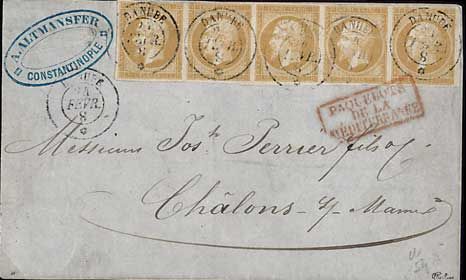 A. ALTMANSFER
CONSTANTINOPLE
DANUBE
DANUBE
DANUBE
DANUBE
DANUBE
DANUBE
FEVR.
8
PAQUEBOTS
DE LA
MÉDITERRANÉE
Messieurs Jos.h Perrier fils & C
Châlons s/ Marne